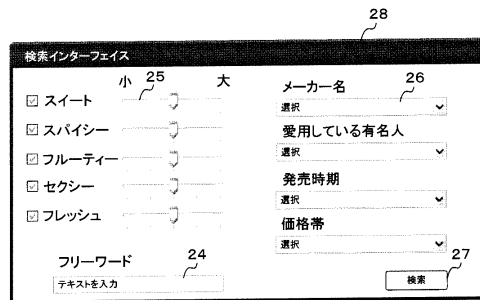 28
検索インターフェイス
小 25 大
スイート
スパイシー
フルーティー
セクシー
フレッシュ
フリーワード 24
テキストを入力
メーカー名 26
選択
愛用している有名人
選択
発売時期
選択
価格帯
選択
27
検索